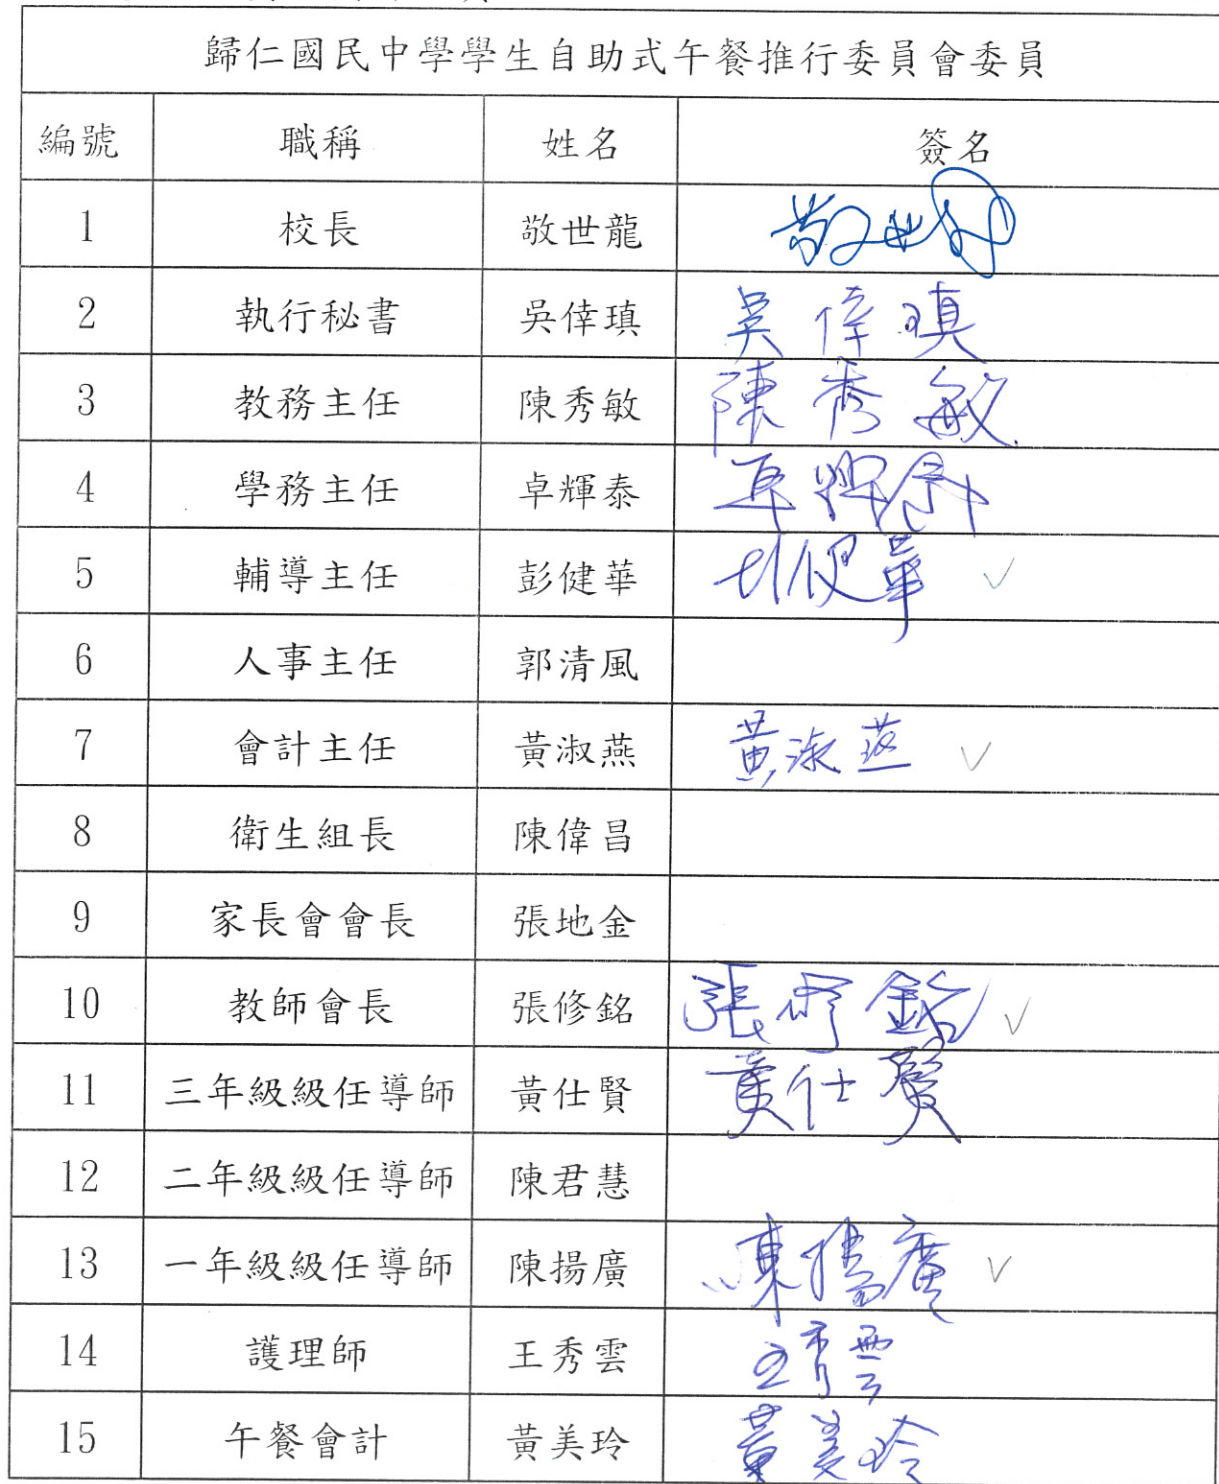 歸仁國民中學學生自助式午餐推行委員會委員
編號 職稱 姓名 簽名
1 校長 敬世龍 敬世龍
2 執行秘書 吳倖瑱 吳倖瑱
3 教務主任 陳秀敏 陳秀敏
4 學務主任 卓輝泰 卓輝泰
5 輔導主任 彭健華 彭健華 ✓
6 人事主任 郭清風
7 會計主任 黃淑燕 黃淑燕 ✓
8 衛生組長 陳偉昌
9 家長會會長 張地金
10 教師會長 張修銘 張修銘 ✓
11 三年級級任導師 黃仕賢 黃仕賢
12 二年級級任導師 陳君慧
13 一年級級任導師 陳揚廣 陳揚廣 ✓
14 護理師 王秀雲 王秀雲
15 午餐會計 黃美玲 黃美玲